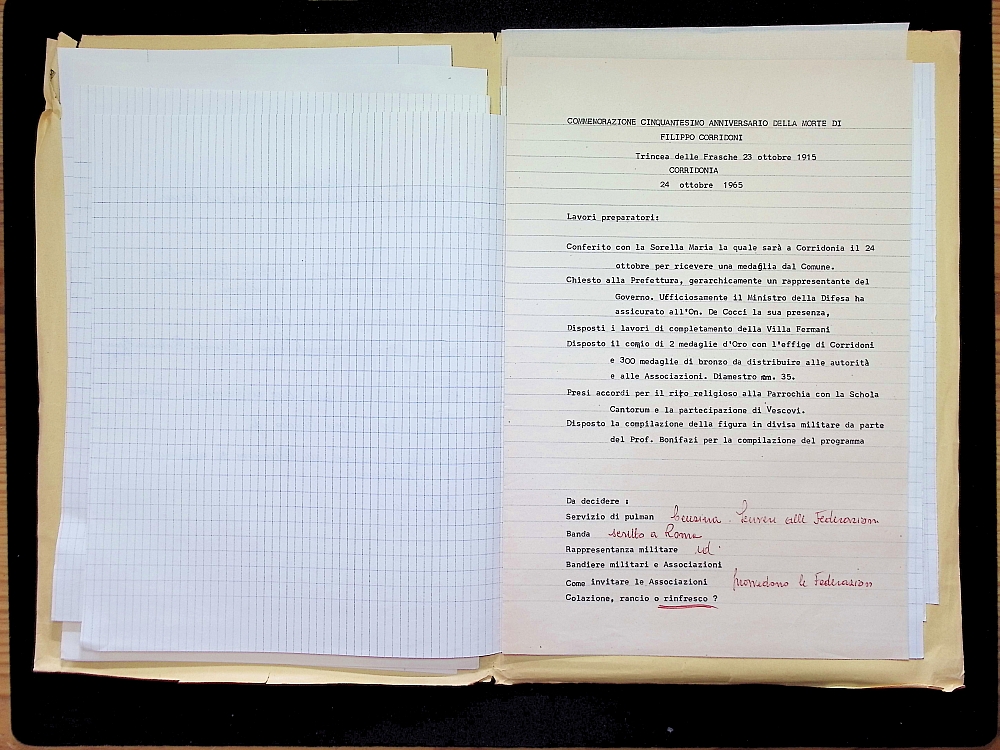 COMMEMORAZIONE CINQUANTESIMO ANNIVERSARIO DELLA MORTE DI
FILIPPO CORRIDONI
Trincea delle Frasche 23 ottobre 1915
CORRIDONIA
24 ottobre 1965
Lavori preparatori:
Conferito con la Sorella Maria la quale sarà a Corridonia il 24
ottobre per ricevere una medaglia dal Comune.
Chiesto alla Prefettura, gerarchicamente un rappresentante del
Governo. Ufficiosamente il Ministro della Difesa ha
assicurato all'On. De Cocci la sua presenza,
Disposti i lavori di completamento della Villa Fermani
Disposto il comio di 2 medaglie d'Oro con l'effige di Corridoni
e 300 medaglie di bronzo da distribuire alle autorità
e alle Associazioni. Diamestro mm. 35.
Presi accordi per il rito religioso alla Parrochia con la Schola
Cantorum e la partecipazione di Vescovi.
Disposto la compilazione della figura in divisa militare da parte
del Prof. Bonifazi per la compilazione del programma
Da decidere :
Servizio di pulman alle Federazioni
Banda scritto a Roma
Rappresentanza militare id.
Bandiere militari e Associazioni
Come invitare le Associazioni provvedono le Federazioni
Colazione, rancio o rinfresco ?